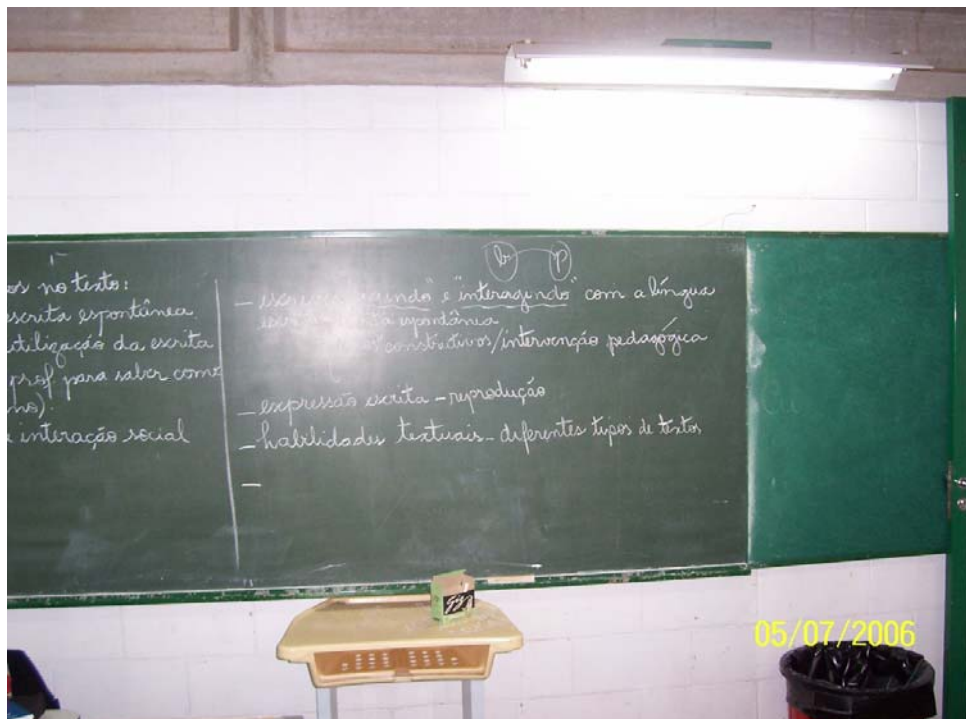 no texto:
escrita espontânea
utilização da escrita
prof. para saber como
interação social
b p
— "interagindo" com a língua
espontânea
construtivos/intervenção pedagógica
— expressão escrita – reprodução
— habilidades textuais – diferentes tipos de textos
—
05/07/2006